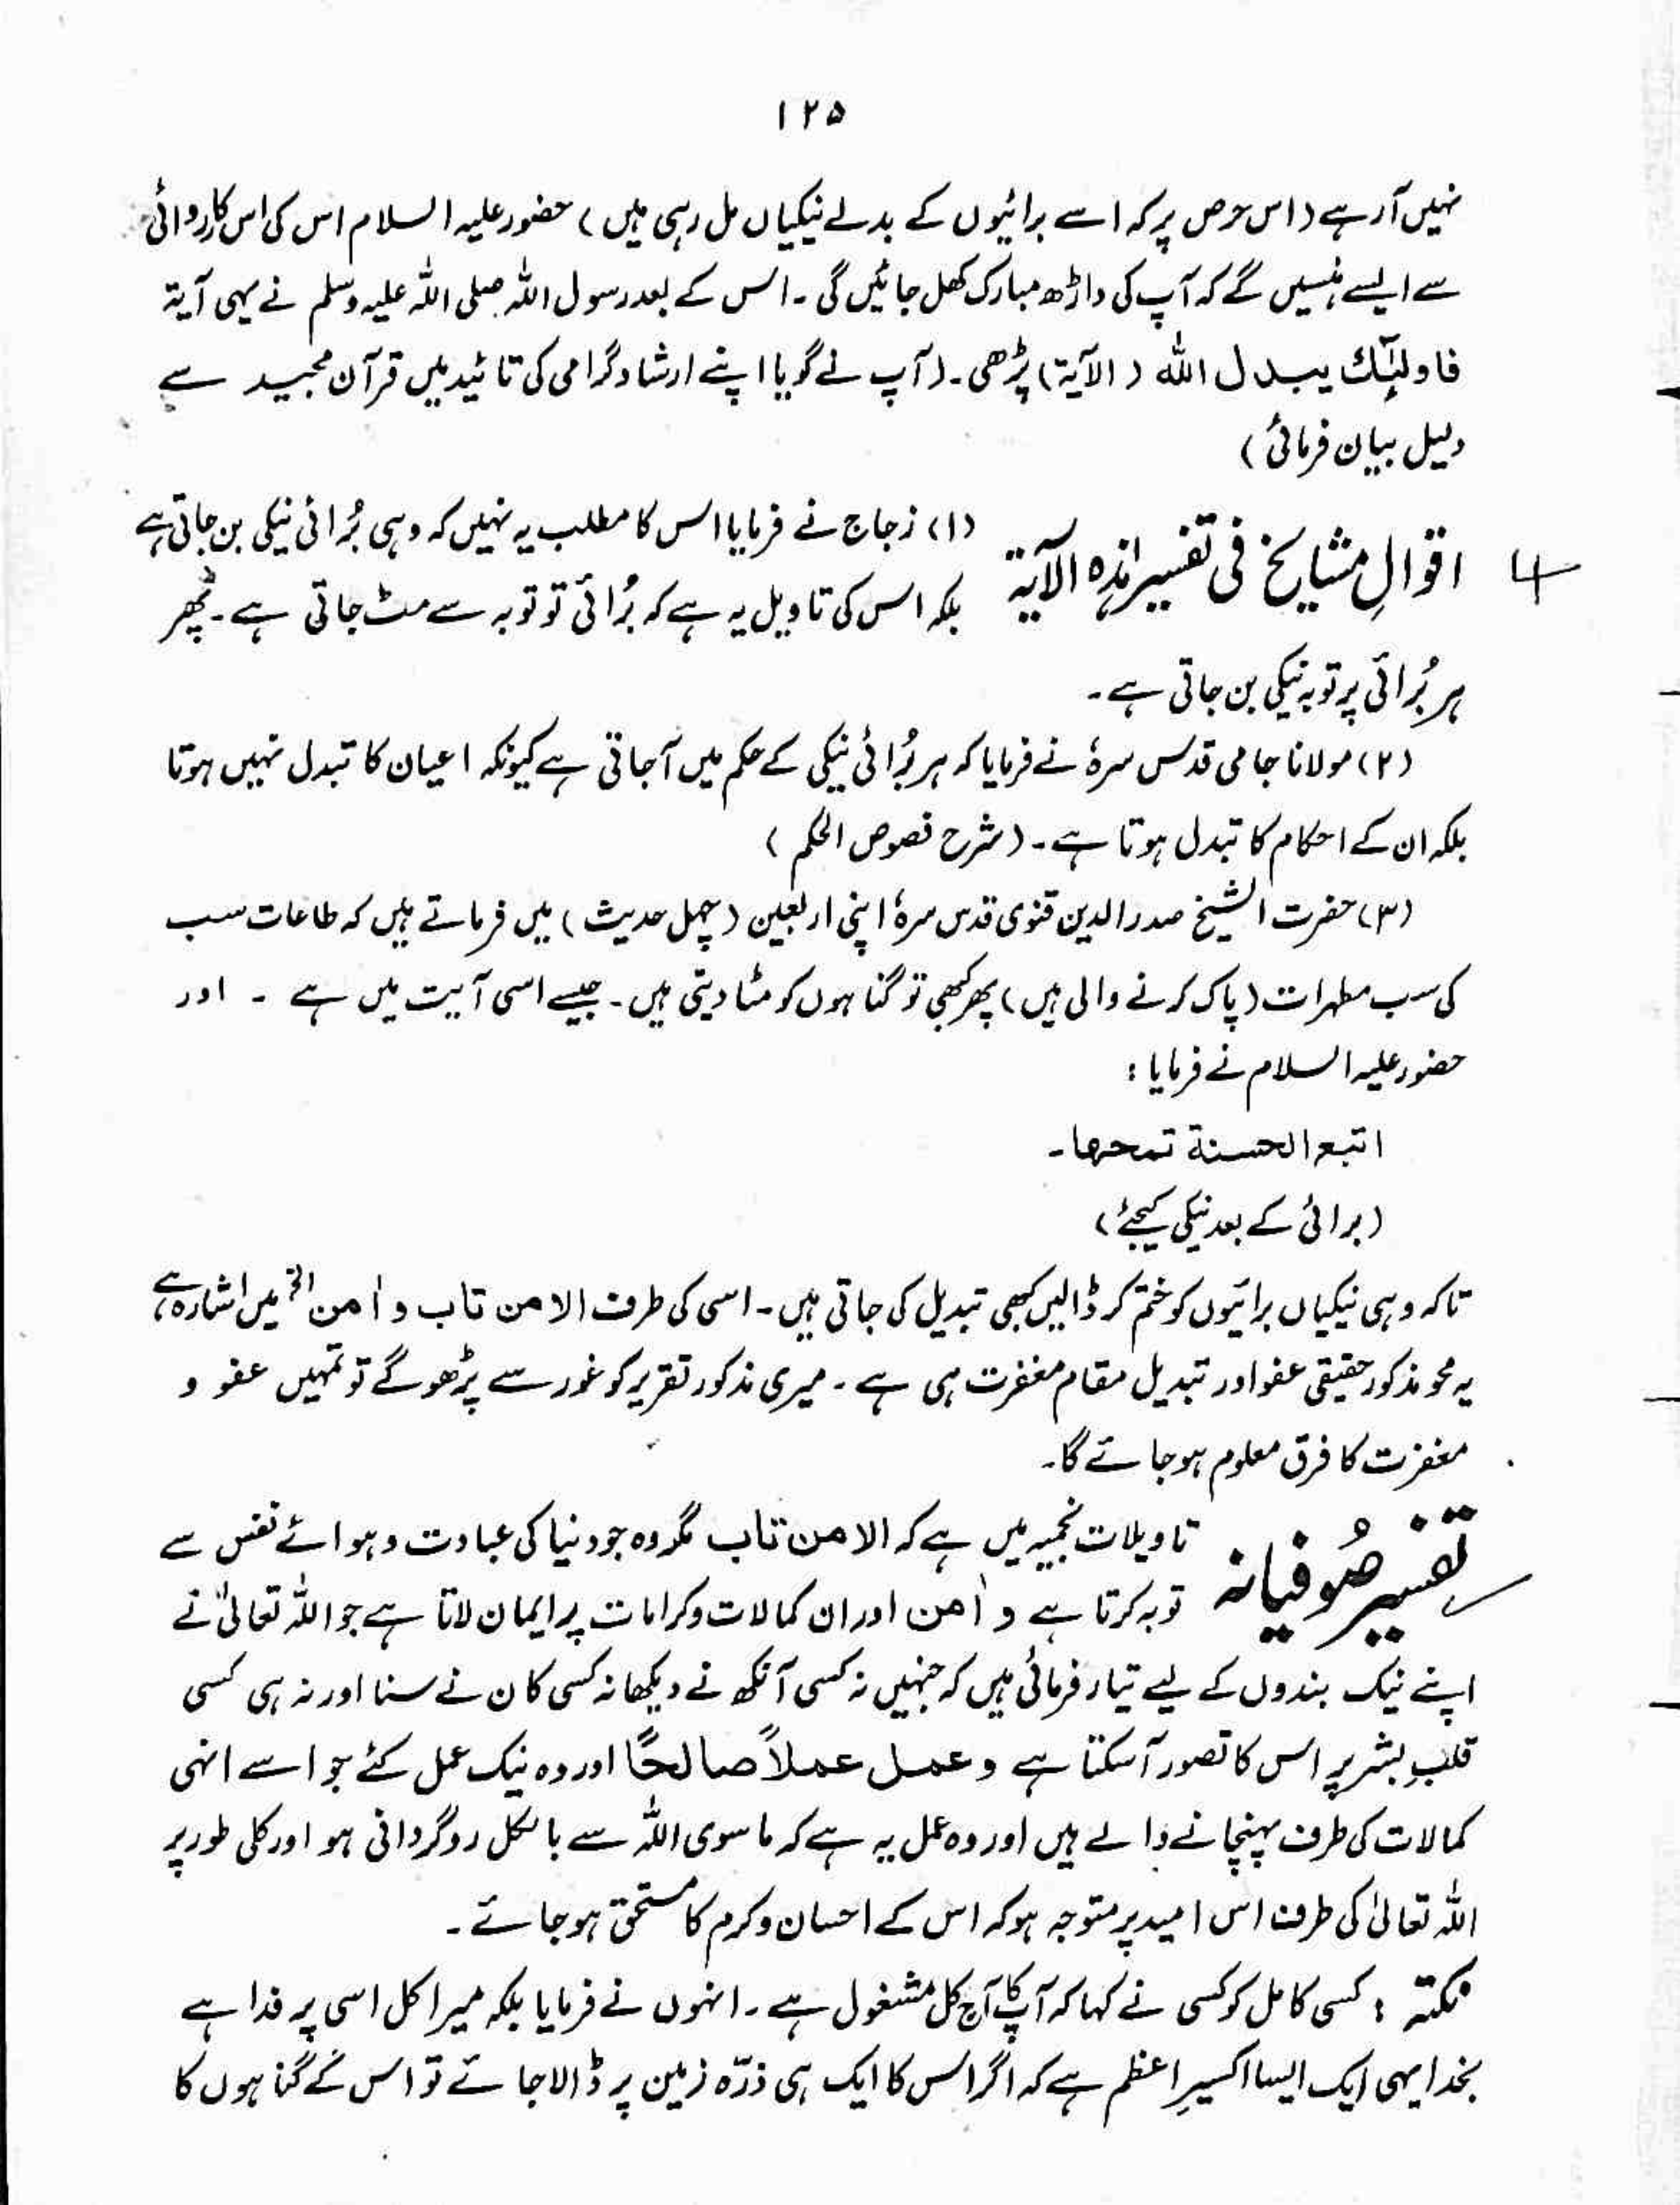 ۱۲۵
نہیں آرہے (اس حرص پر کہ اسے برائیوں کے بدلے نیکیاں مل رہی ہیں) حضور علیہ السلام اس کی اس کارروائی
سے ایسے ہنسیں گے کہ آپ کی داڑھ مبارک کھل جائیں گی۔ اس کے بعد رسول اللہ صلی اللہ علیہ وسلم نے یہی آیۃ
فاولٰئک یبدل اللہ (الآیۃ) پڑھی۔ (آپ نے گویا اپنے ارشاد گرامی کی تائید میں قرآن مجید سے
دلیل بیان فرمائی)
اقوالِ مشایخ فی تفسیر ہٰذہ الآیۃ
(۱) زجاج نے فرمایا اس کا مطلب یہ نہیں کہ وہی بُرائی نیکی بن جاتی ہے
بلکہ اس کی تاویل یہ ہے کہ بُرائی تو توبہ سے مٹ جاتی ہے۔ پھر
ہر بُرائی پر توبہ نیکی بن جاتی ہے۔
(۲) مولانا جامی قدس سرہٗ نے فرمایا کہ ہر بُرائی نیکی کے حکم میں آجاتی ہے کیونکہ اعیان کا تبدل نہیں ہوتا
بلکہ ان کے احکام کا تبدل ہوتا ہے۔ (شرح فصوص الحکم)
(۳) حضرت الشیخ صدر الدین قنوی قدس سرہٗ اپنی اربعین (چہل حدیث) میں فرماتے ہیں کہ طاعات سب
کی سب مطہرات (پاک کرنے والی ہیں) پھر کبھی تو گناہوں کو مٹا دیتی ہیں۔ جیسے اسی آیت میں ہے ۔ اور
حضور علیہ السلام نے فرمایا :
اتبع الحسنة تمحها۔
(برائی کے بعد نیکی کیجئے)
تاکہ وہی نیکیاں برائیوں کو ختم کر ڈالیں کبھی تبدیل کی جاتی ہیں۔ اسی کی طرف الا من تاب و اٰمن الخ میں اشارہ ہے،
یہ محو مذکور حقیقی عفو اور تبدیل مقام مغفرت ہی ہے۔ میری مذکور تقریر کو غور سے پڑھو گے تو تمہیں عفو و
مغفرت کا فرق معلوم ہوجائے گا۔
تفسیر صُوفیانہ
تاویلات نجمیہ میں ہے کہ الا من تاب مگر وہ جو دنیا کی عبادت و ہوائے نفس سے
توبہ کرتا ہے و اٰمن اور ان کمالات و کرامات پر ایمان لاتا ہے جو اللہ تعالیٰ نے
اپنے نیک بندوں کے لیے تیار فرمائی ہیں کہ جنہیں نہ کسی آنکھ نے دیکھا نہ کسی کان نے سنا اور نہ ہی کسی
قلبِ بشر پر اس کا تصور آسکتا ہے و عمل عملاً صالحًا اور وہ نیک عمل کئے جو اسے انہی
کمالات کی طرف پہنچانے والے ہیں اور وہ عمل یہ ہے کہ ماسوی اللہ سے بالکل روگردانی ہو اور کلی طور پر
اللہ تعالیٰ کی طرف اس امید پر متوجہ ہو کہ اس کے احسان و کرم کا مستحق ہوجائے ۔
نکتہ : کسی کامل کو کسی نے کہا کہ آپ کا آج کل مشغول ہے ۔ انہوں نے فرمایا بلکہ میرا کل اسی پر فدا ہے
بخدا یہی ایک ایسا اکسیرِ اعظم ہے کہ اگر اس کا ایک ہی ذرّہ زمین پر ڈالا جائے تو اس کے گناہوں کا